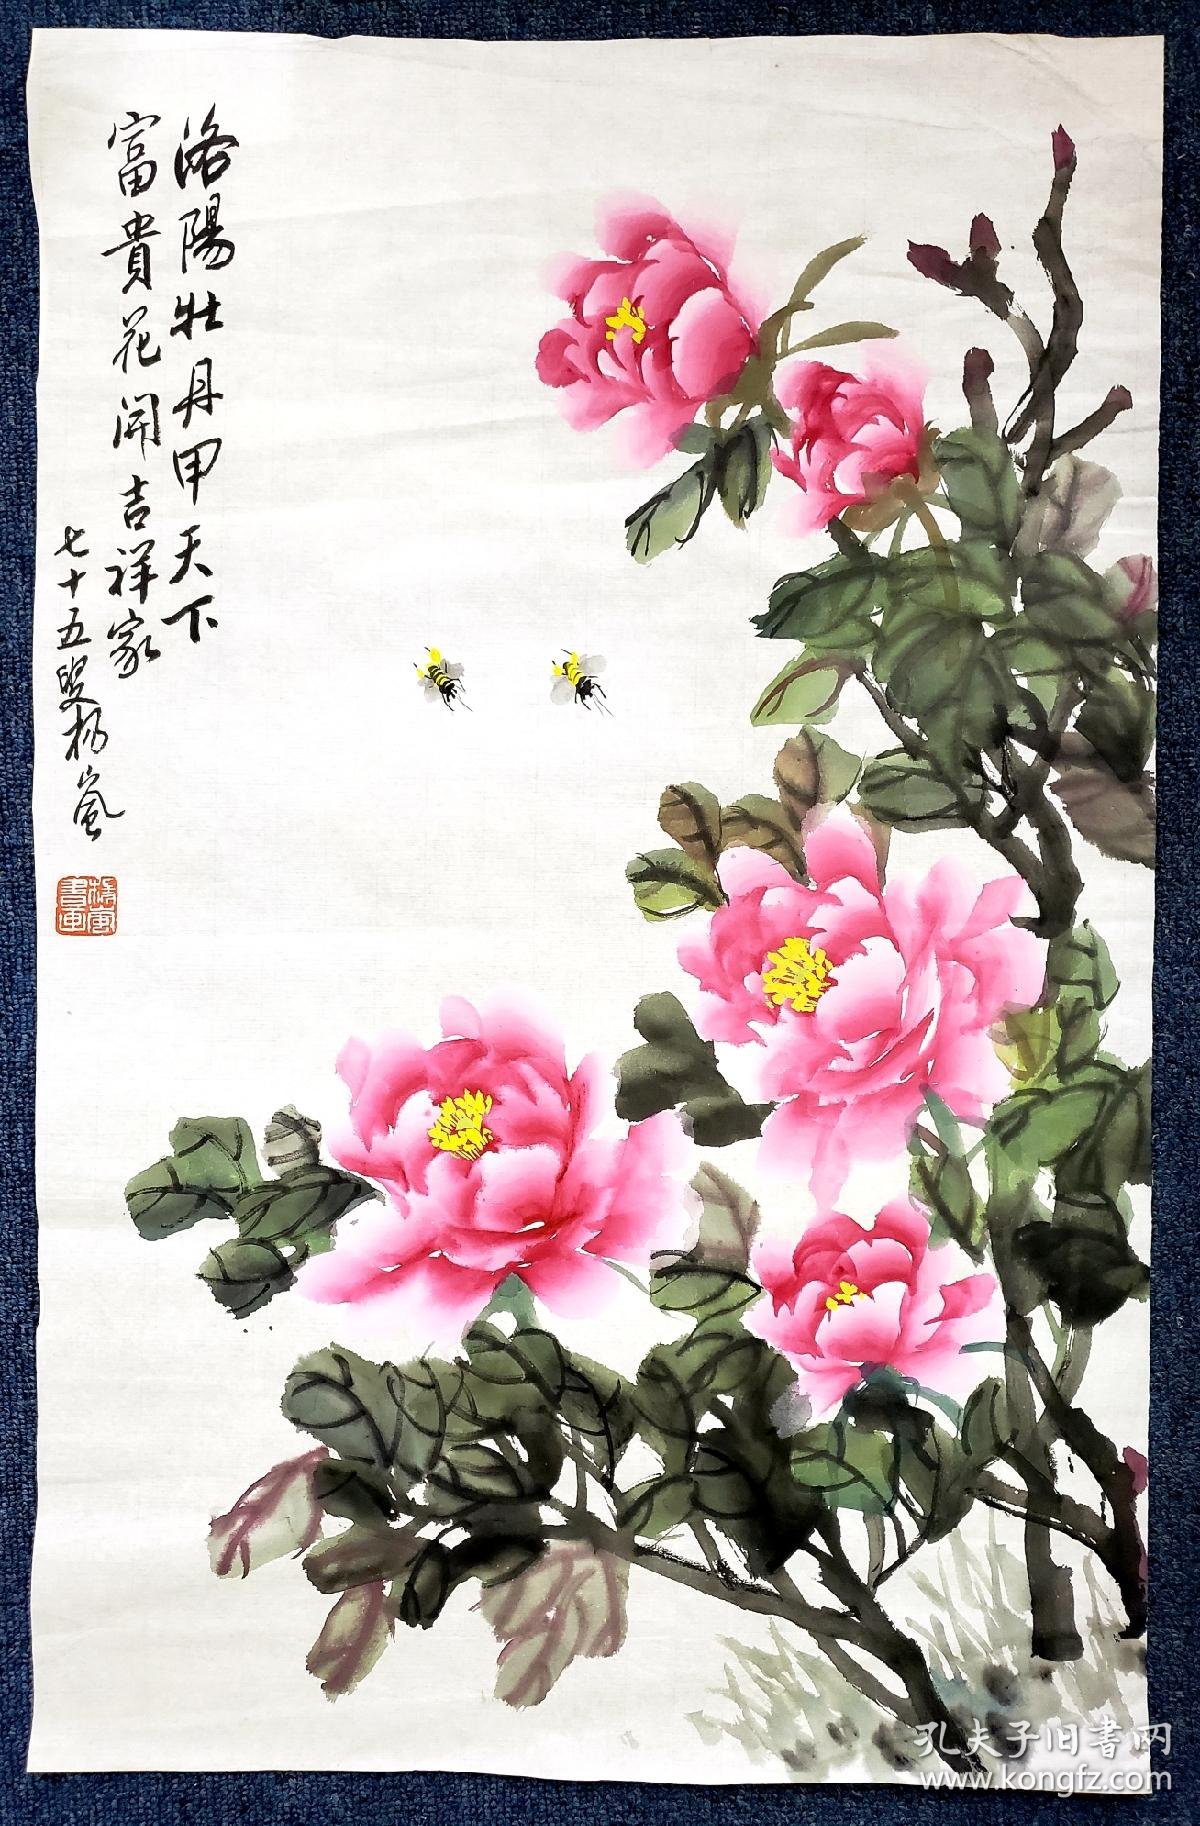 洛陽牡丹甲天下
富貴花開吉祥家
七十五叟楊嵐
孔夫子旧書网
www.kongfz.com